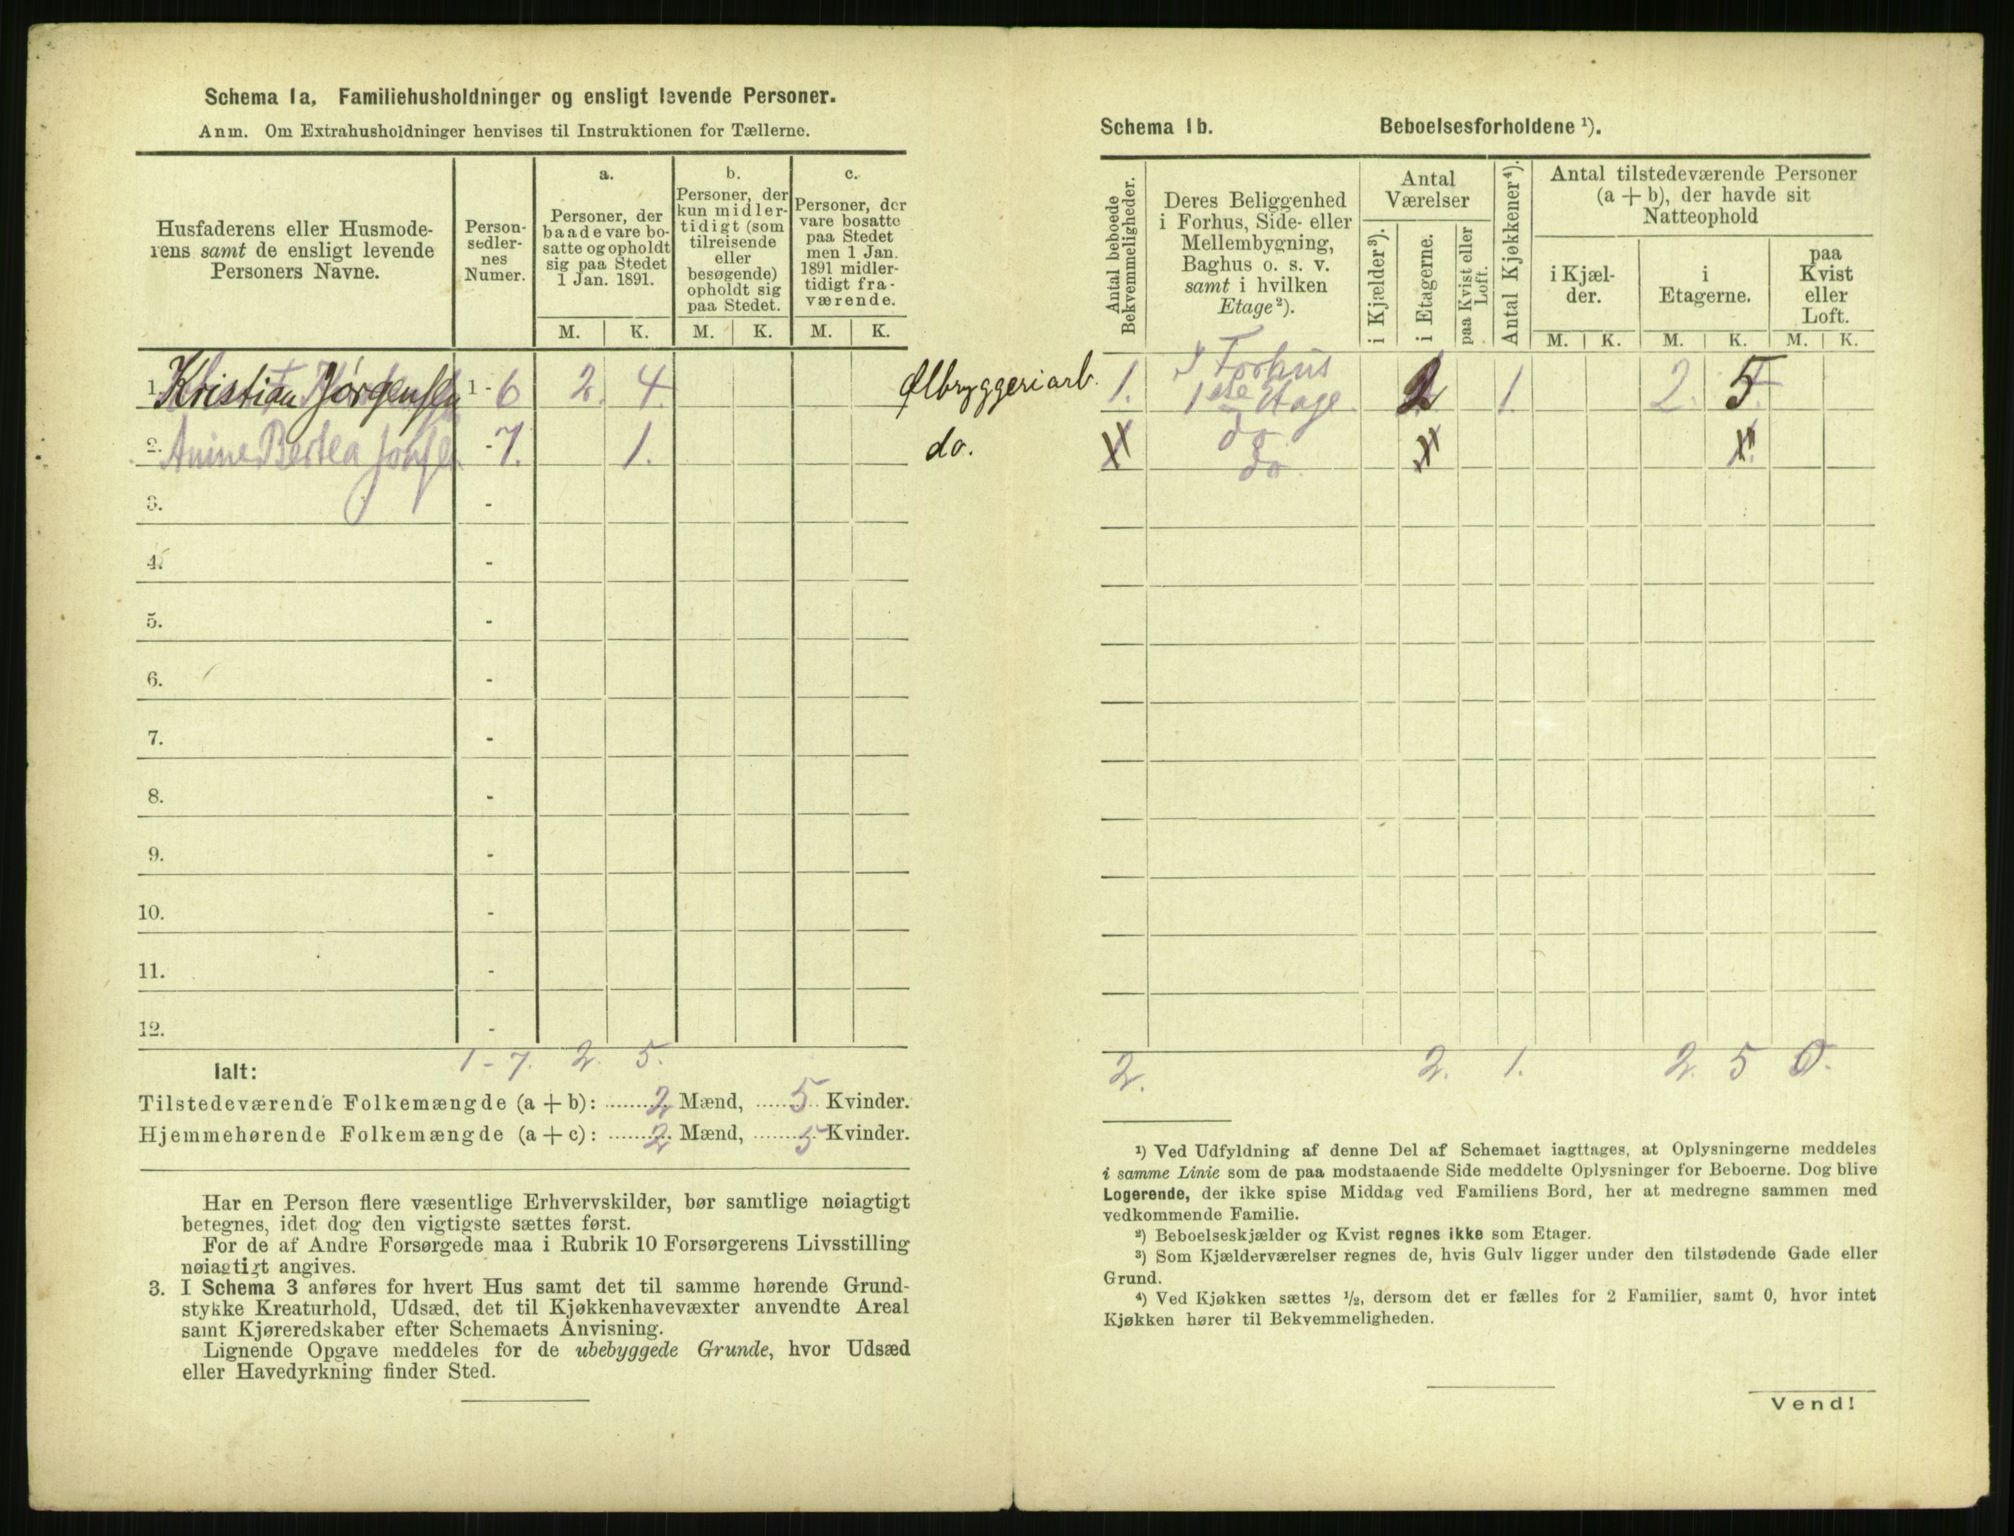 Schema 1a, Familiehusholdninger og ensligt levende Personer.
Anm. Om Extrahusholdninger henvises til Instruktionen for Tællerne.
Husfaderens eller Husmode-
rens samt de ensligt levende
Personers Navne.
Person-
sedler-
nes
Numer.
a.
Personer, der
baade vare bo-
satte og opholdt
sig paa Stedet
1 Jan. 1891.
b.
Personer, der
kun midler-
tidigt (som
tilreisende
eller
besøgende)
opholdt sig
paa Stedet.
c.
Personer, der
vare bosatte
paa Stedet
men 1 Jan.
1891 midler-
tidigt fra-
værende.
M. K. M. K. M. K.
1. Kristian Jørgensen 1 - 6 2. 4. Ølbryggeriarb.
2. Anine Bertea - 7. 1. do.
3. -
4. -
5. -
6. -
7. -
8. -
9. -
10. -
11. -
12. -
Ialt: 1 - 7. 2. 5.
Tilstedeværende Folkemængde (a + b): 2 Mænd, 5 Kvinder.
Hjemmehørende Folkemængde (a + c): 2 Mænd, 5 Kvinder.
Har en Person flere væsentlige Erhvervskilder, bør samtlige nøiagtigt
betegnes, idet dog den vigtigste sættes først.
For de af Andre Forsørgede maa i Rubrik 10 Forsørgerens Livsstilling
nøiagtigt angives.
3. I Schema 3 anføres for hvert Hus samt det til samme hørende Grund-
stykke Kreaturhold, Udsæd, det til Kjøkkenhavevæxter anvendte Areal
samt Kjøreredskaber efter Schemaets Anvisning.
Lignende Opgave meddeles for de ubebyggede Grunde, hvor Udsæd
eller Havedyrkning finder Sted.
Schema 1b. Beboelsesforholdene ¹).
Antal beboede
Bekvemmeligheder.
Deres Beliggenhed
i Forhus, Side- eller
Mellembygning,
Baghus o. s. v.
samt i hvilken
Etage²).
Antal
Værelser
i Kjælder³).
i Etagerne.
paa Kvist eller
Loft.
Antal Kjøkkener⁴).
Antal tilstedeværende Personer
(a + b), der havde sit
Natteophold
i Kjæl-
der.
i
Etagerne.
paa
Kvist
eller
Loft.
M. K. M. K. M. K.
1. I Forhus 2 1. 2. 5.
1ste Etage
do
do
2. 2. 1. 2. 5 0.
¹) Ved Udfyldning af denne Del af Schemaet iagttages, at Oplysningerne meddeles
i samme Linie som de paa modstaaende Side meddelte Oplysninger for Beboerne. Dog blive
Logerende, der ikke spise Middag ved Familiens Bord, her at medregne sammen med
vedkommende Familie.
²) Beboelseskjælder og Kvist regnes ikke som Etager.
³) Som Kjælderværelser regnes de, hvis Gulv ligger under den tilstødende Gade eller
Grund.
⁴) Ved Kjøkken sættes ½, dersom det er fælles for 2 Familier, samt 0, hvor intet
Kjøkken hører til Bekvemmeligheden.
Vend!